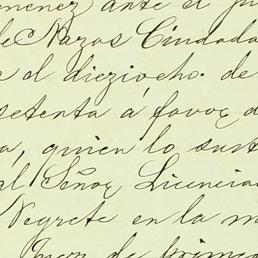 menez ante el ju
de Nazas Ciudada
e el dieziocho de
setenta á favor d
a, quien lo sust
al Señor Licencia
Negrete en la m
Juez de primer